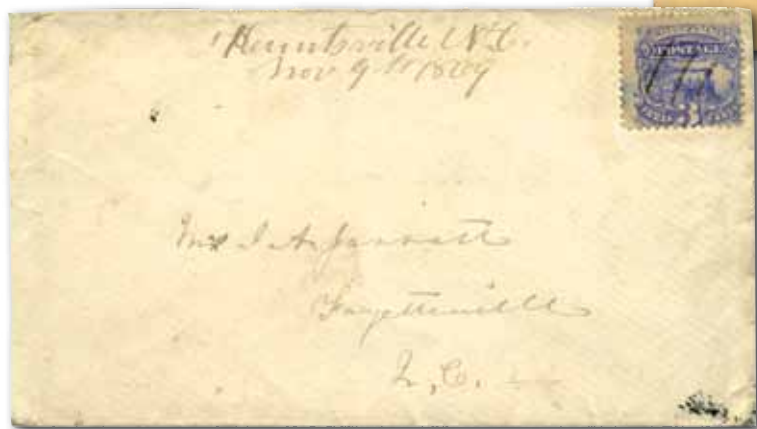 Huntsville N.C.
Nov 9th 1869
POSTAGE
Mr I. A. Jarratt
Fayetteville
N, C.